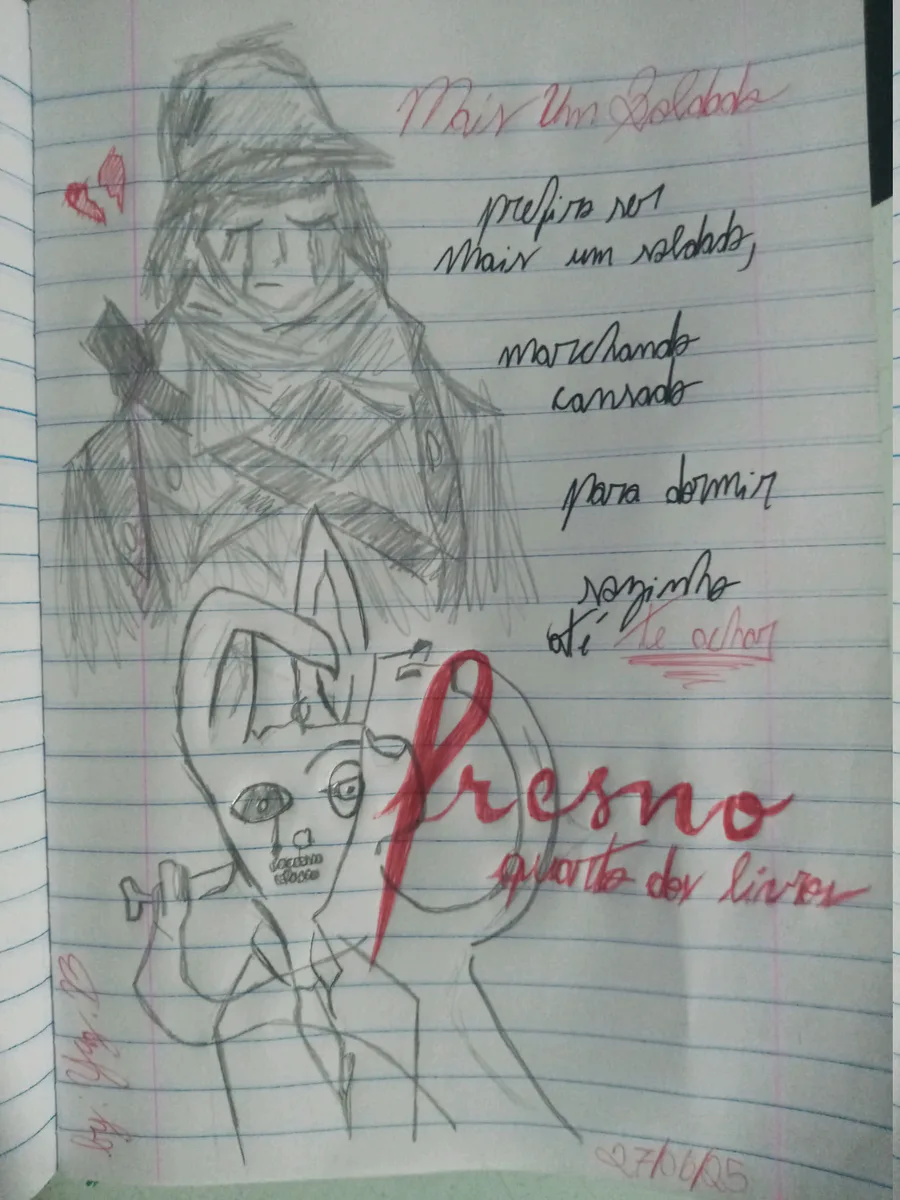 Mais Um Soldado
prefiro ser
Mais um soldado,
marchando
cansado
para dormir
sozinho
até te achar
fresno
quarto dos livros
by: Yag. 23
27/06/25